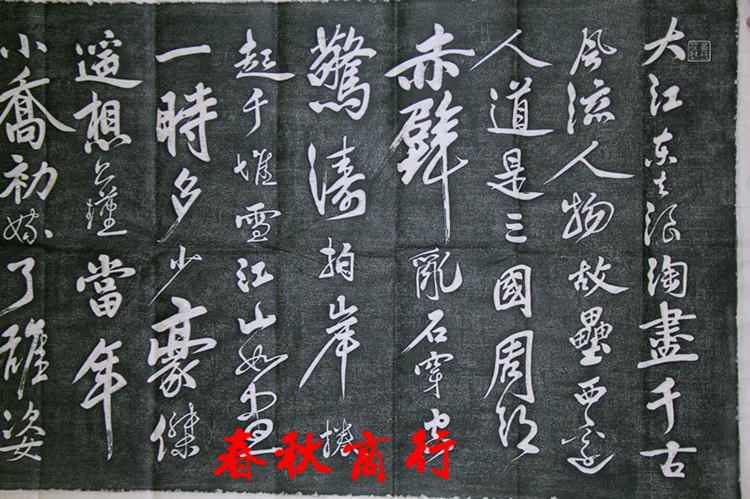 大江东去浪淘盡千古
風流人物故壘西邊
人道是三國周郎
赤壁亂石穿空
驚濤拍岸捲
起千堆雪江山如畫
一時多少豪傑
遥想公瑾當年
小喬初嫁了雄姿
春秋商行